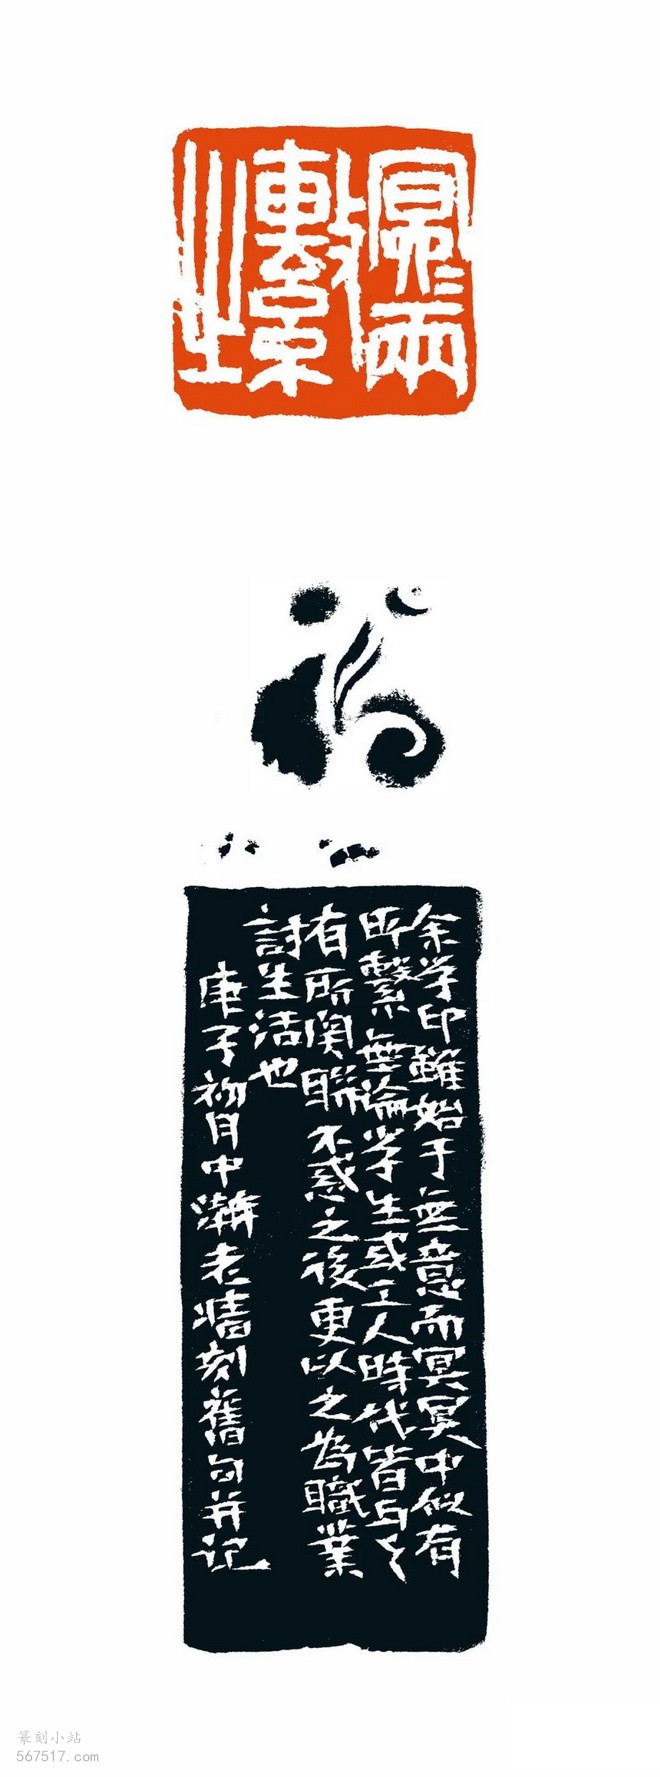 余学印雖始于無意而冥冥中似有
所繫無論学生或工人時代皆与之
有所関聯不惑之後更以之為職業
討生活也
庚子初月中澣老墻刻舊句并记
篆刻小站
567517.com